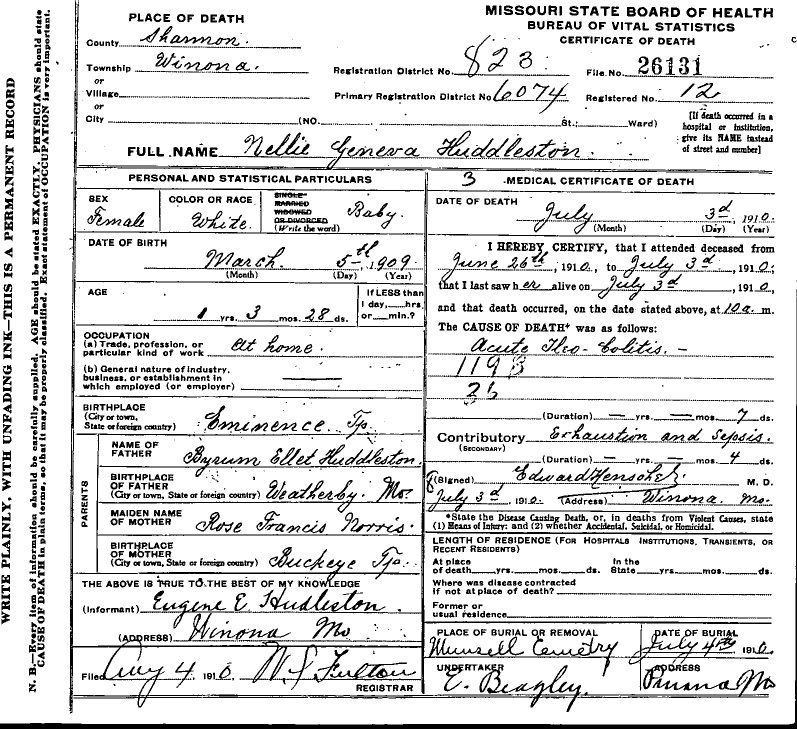 MISSOURI STATE BOARD OF HEALTH
BUREAU OF VITAL STATISTICS
CERTIFICATE OF DEATH
PLACE OF DEATH
County Shannon.
Township Winona.
or
Village
or
City (NO. St.; Ward)
Registration District No. 823 File No. 26131
Primary Registration District No. 6074 Registered No. 12
[If death occurred in a
hospital or institution,
give its NAME instead
of street and number]
FULL NAME Nellie Geneva Huddleston.
PERSONAL AND STATISTICAL PARTICULARS
SEX
Female
COLOR OR RACE
White
SINGLE
MARRIED
WIDOWED
OR DIVORCED
(Write the word)
Baby.
DATE OF BIRTH
March 5th, 1909
(Month) (Day) (Year)
AGE
1 yrs. 3 mos. 28 ds.
If LESS than
1 day, hrs.
or min.?
OCCUPATION
(a) Trade, profession, or
particular kind of work At home.
(b) General nature of industry,
business, or establishment in
which employed (or employer)
BIRTHPLACE
(City or town,
State or foreign country) Eminence Tp.
PARENTS
NAME OF
FATHER Byrum Ellet Huddleston
BIRTHPLACE
OF FATHER
(City or town, State or foreign country) Weatherby Mo.
MAIDEN NAME
OF MOTHER Rose Francis Norris
BIRTHPLACE
OF MOTHER
(City or town, State or foreign country) Buckeye Tp.
THE ABOVE IS TRUE TO THE BEST OF MY KNOWLEDGE
(Informant) Eugene E. Hudleston
(ADDRESS) Winona Mo
Filed Aug 4 1910 W S Fulton
REGISTRAR
3 MEDICAL CERTIFICATE OF DEATH
DATE OF DEATH
July 3d, 1910.
(Month) (Day) (Year)
I HEREBY CERTIFY, that I attended deceased from
June 26th, 1910, to July 3d, 1910,
that I last saw her alive on July 3d, 1910,
and that death occurred, on the date stated above, at 10 a. m.
The CAUSE OF DEATH* was as follows:
Acute Ileo-Colitis. -
119B
(Duration) — yrs. — mos. 7 ds.
Contributory Exhaustion and Sepsis.
(SECONDARY)
(Duration) — yrs. — mos. 4 ds.
(Signed) Edward Henschel M. D.
July 3d, 1910. (Address) Winona. Mo.
*State the Disease Causing Death, or, in deaths from Violent Causes, state
(1) Means of Injury; and (2) whether Accidental, Suicidal, or Homicidal.
LENGTH OF RESIDENCE (FOR HOSPITALS INSTITUTIONS, TRANSIENTS, OR
RECENT RESIDENTS)
At place
of death yrs. mos. ds.
In the
State yrs. mos. ds.
Where was disease contracted
if not at place of death?
Former or
usual residence
PLACE OF BURIAL OR REMOVAL
Munsell Cemetry
DATE OF BURIAL
July 4th 1910
UNDERTAKER
E. Beagley.
ADDRESS
Mo
WRITE PLAINLY, WITH UNFADING INK—THIS IS A PERMANENT RECORD
N. B.—Every item of information should be carefully supplied. AGE should be stated EXACTLY. PHYSICIANS should state
CAUSE OF DEATH in plain terms, so that it may be properly classified. Exact statement of OCCUPATION is very important.